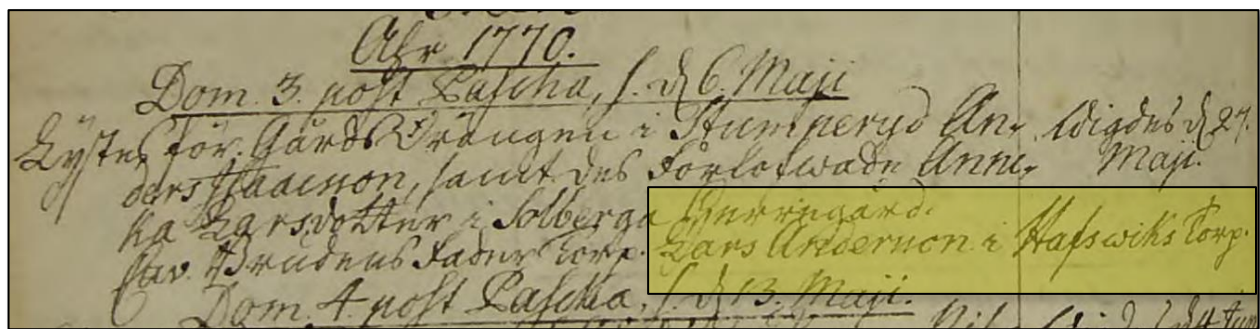 Åhr 1770.
Dom. 3. post Pascha, s. d. 6. Maji
Lystes för. Gårds Drängen i Stumperyd An- Wigdes d. 27.
ders Isaacsson, samt des Förlofwade Anni- Maji.
ka Larsdotter i Solberga Herregård.
Cav. Brudens Fader Torp. Lars Andersson i Hafswiks Torp.
Dom. 4. post Pascha, s. d. 13. Maji.